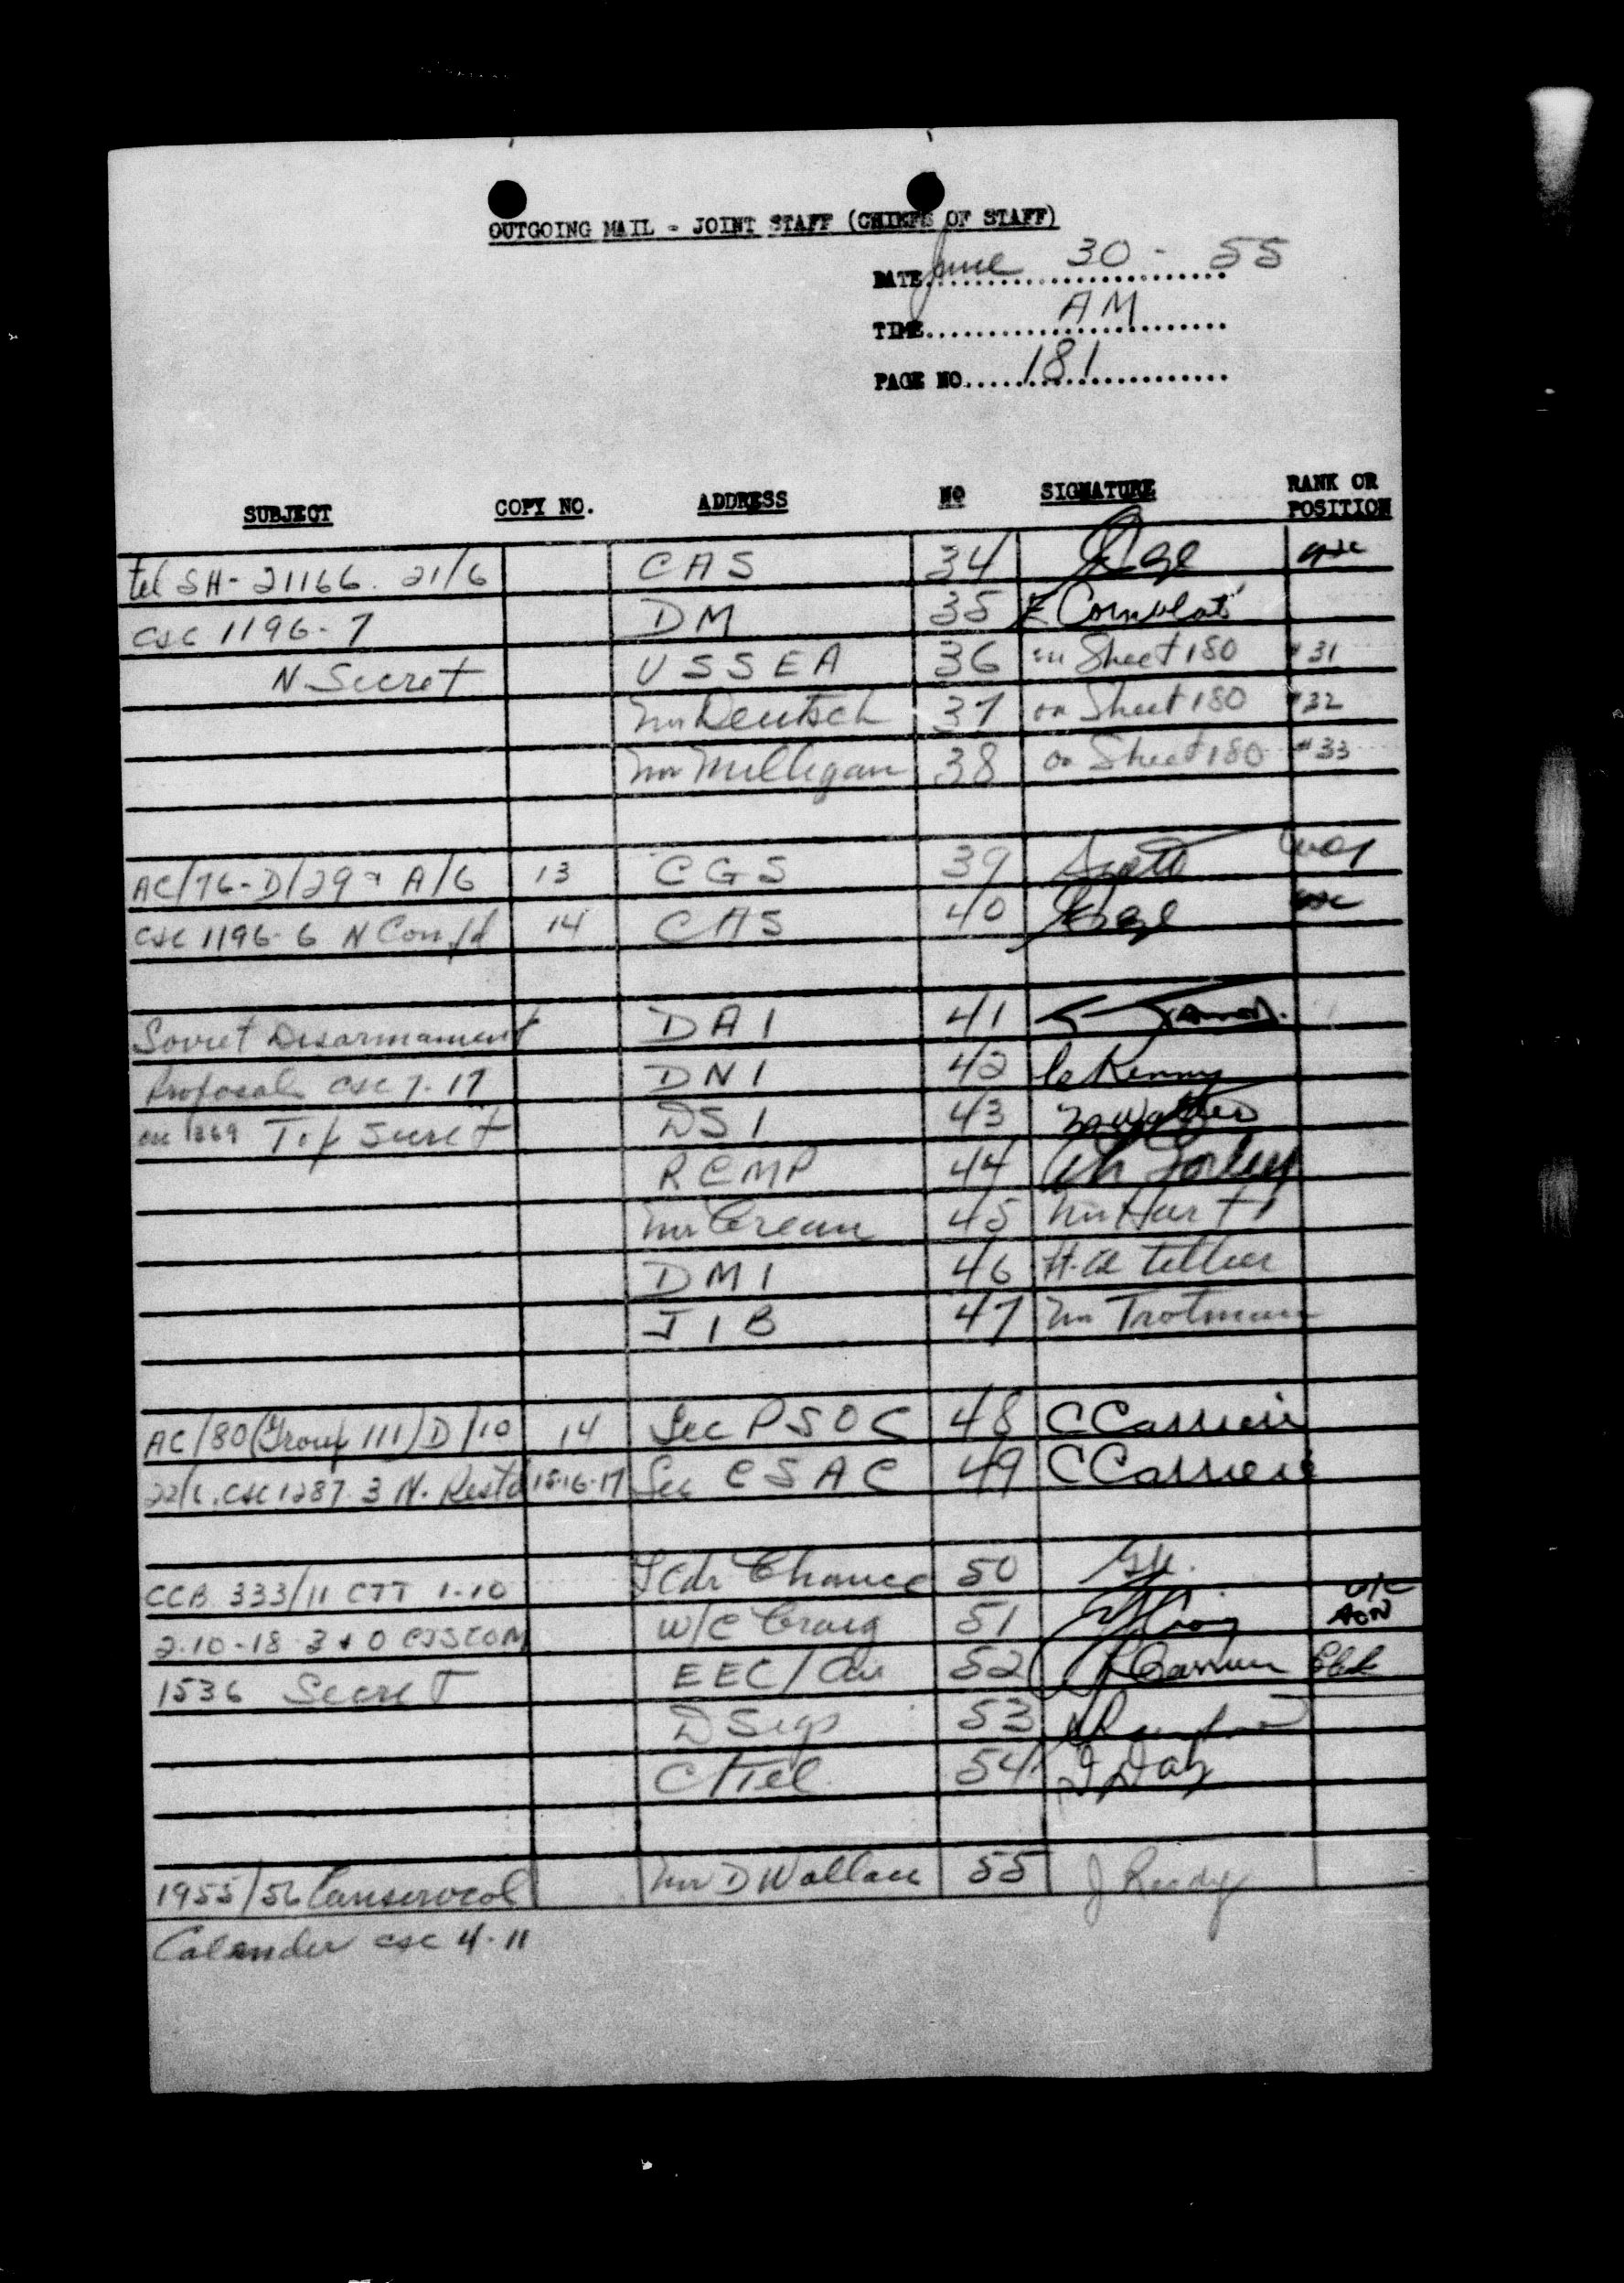 OUTGOING MAIL - JOINT STAFF (CHIEFS OF STAFF)
DATE June 30 - 55
TIME AM
PAGE NO. 181
SUBJECT COPY NO. ADDRESS NO SIGNATURE RANK OR POSITION
tel SH-21166. 21/6 CAS 34
csc 1196-7 DM 35 E
N Secret USSEA 36 on Sheet 180 #31
Mr Deutsch 37 on Sheet 180 #32
Mr Milligan 38 on Sheet 180 #33
AC/76-D/29 A/6 13 CGS 39
csc 1196-6 N Confd 14 CAS 40
Soviet Disarmament DAI 41
Proposals csc 7-17 DNI 42 Kenny
csc 1269 Top Secret DSI 43
RCMP 44
Mr Crean 45 Mr Hart
DMI 46 H.A. Tellier
JIB 47 Mr Trotman
AC/80 (Group 111) D/10 14 Sec PSOC 48 C Carriere
22/6. csc 1287-3 N. Restd 15-16-17 Sec CSAC 49 C Carriere
CCB 333/11 CTT 1-10 LCdr Chance 50
2-10-18-3 & 0 CJSCOM W/C Craig 51 Craig W/C AON
1536 Secret EEC/Air 52 Clerk
D Sigs 53
C/Tel. 54 Day
1955/56 Mr D Wallace 55 J
Calender csc 4-11